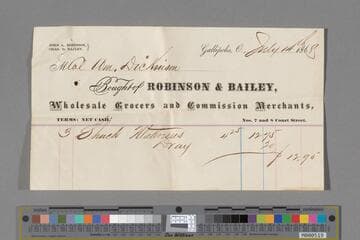 JOHN A. ROBINSON,
CHAS. D. BAILEY.
Gallipolis, O. July 186
Wm. Dickinson
Bought of ROBINSON & BAILEY,
Wholesale Grocers and Commission Merchants,
TERMS: NET CASH. Nos. 7 and 8 Court Street.
3 4 25 12 75
Dray 20
$ 12.95